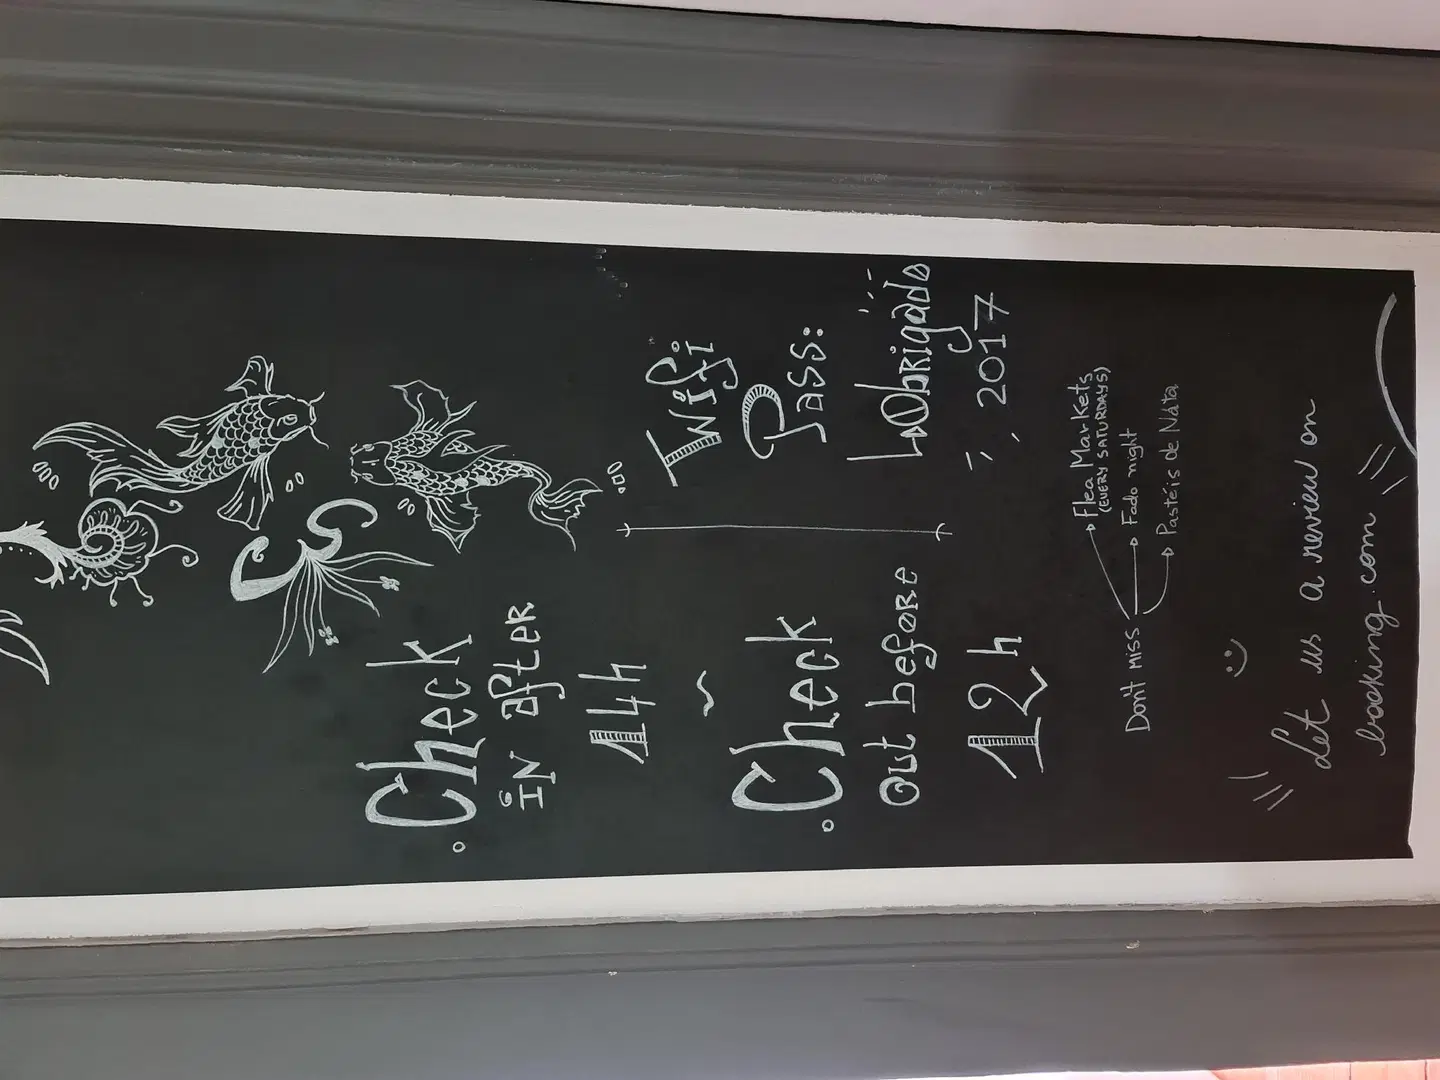 Check
IN after
14h
~
Check
Out before
12h
Wifi
Pass:
Obrigado
2017
Don't miss
Flea Markets
(EVERY SATURDAYS)
Fado night
Pastéis de Nata
:)
Let us a review on
booking.com